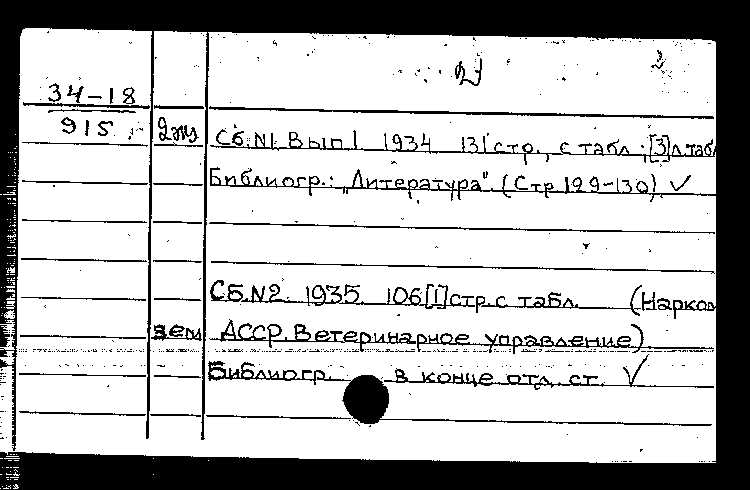 2
34-18
915 2 экз Сб. N1. Вып 1 1934 131 стр., с табл.; [3] л. табл
Библиогр.: „Литература". (Стр 129-130) ✓
Сб. N2. 1935. 106 [1] стр. с табл. (Нарком
зем АССР. Ветеринарное управление).
Библиогр. в конце отд. ст. ✓